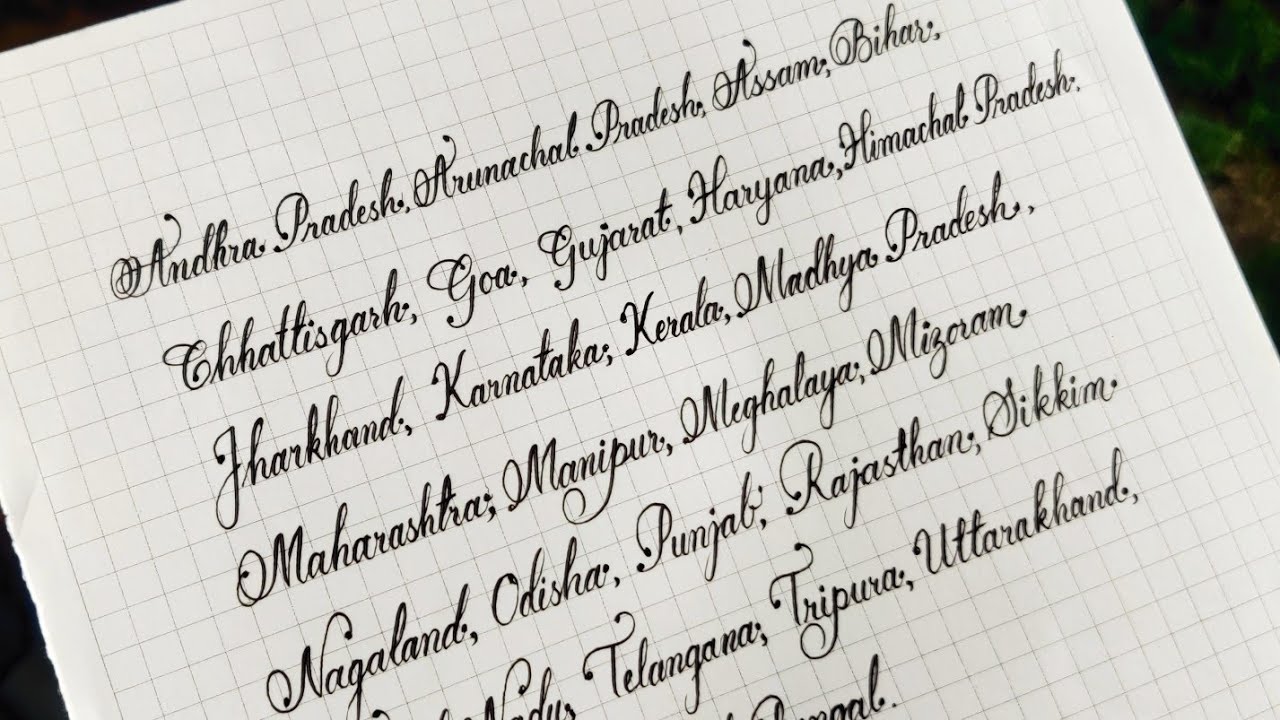 Andhra Pradesh, Arunachal Pradesh, Assam, Bihar,
Chhattisgarh, Goa, Gujarat, Haryana, Himachal Pradesh.
Jharkhand, Karnataka, Kerala, Madhya Pradesh,
Maharashtra, Manipur, Meghalaya, Mizoram
Nagaland, Odisha, Punjab, Rajasthan, Sikkim
Nadu, Telangana, Tripura, Uttarakhand,